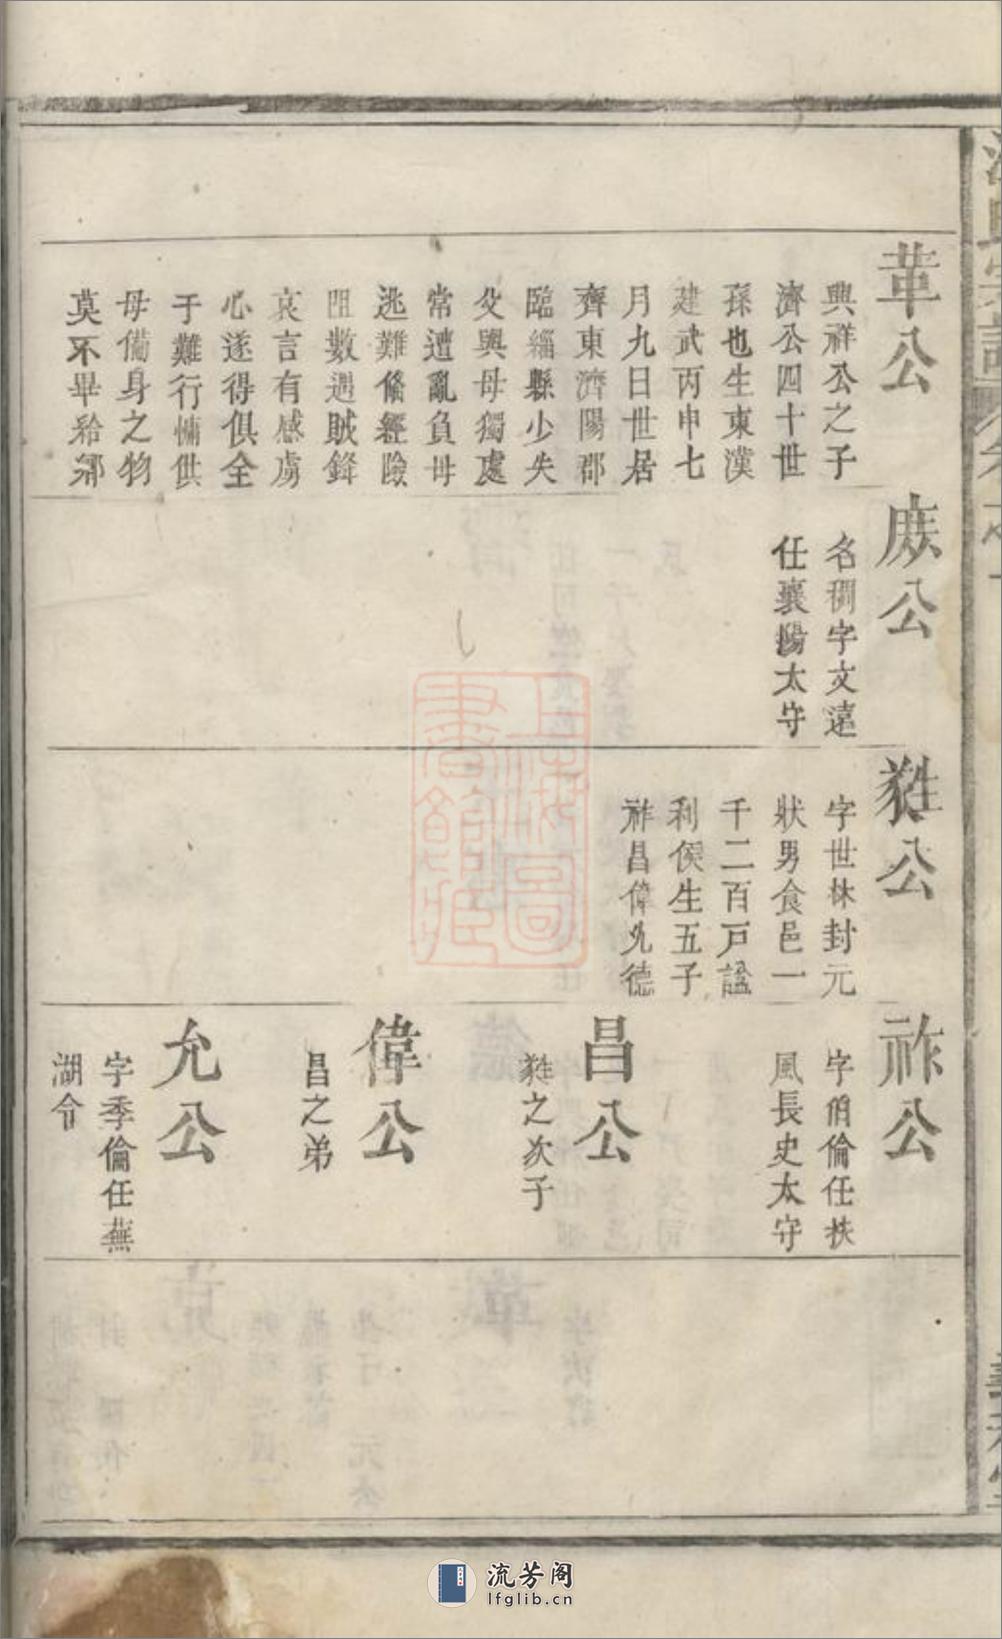 革公
興祥公之子
濟公四十世
孫也生東漢
建武丙申七
月九日世居
齊東濟陽郡
臨緇縣少失
父與母獨處
常遭亂負母
逃難俻經險
阻數遇賊鋒
哀言有感虜
心遂得俱全
于難行慵供
母備身之物
莫不畢給鄉
廒公
名稠字文遠
任襄陽太守
甤公
字世林封元
狀男食邑一
千二百戸謚
利侯生五子
祚昌偉允德
祚公
字俏倫任扶
風長史太守
昌公
甤之次子
偉公
昌之弟
允公
字季倫任蕪
湖令
上海圖
書館藏
流芳阁
lfglib.cn